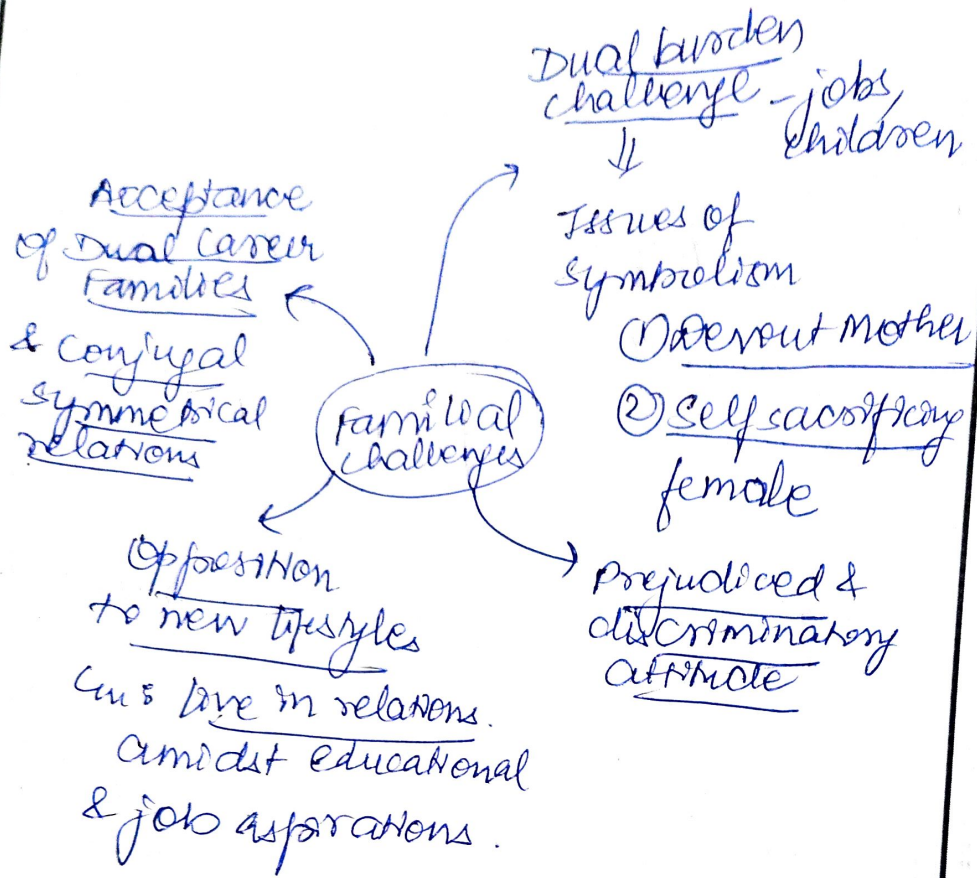 Dual burden
challenge - jobs,
children
⇓
Issues of
symbolism
① Devout Mother
② Self sacrificing
female
Acceptance
of Dual Career
Families
& Conjugal
symmetrical
relations
Familial
challenges
Opposition
to new lifestyles
live in relations.
amidst educational
& job aspirations.
Prejudiced &
discriminatory
attitude